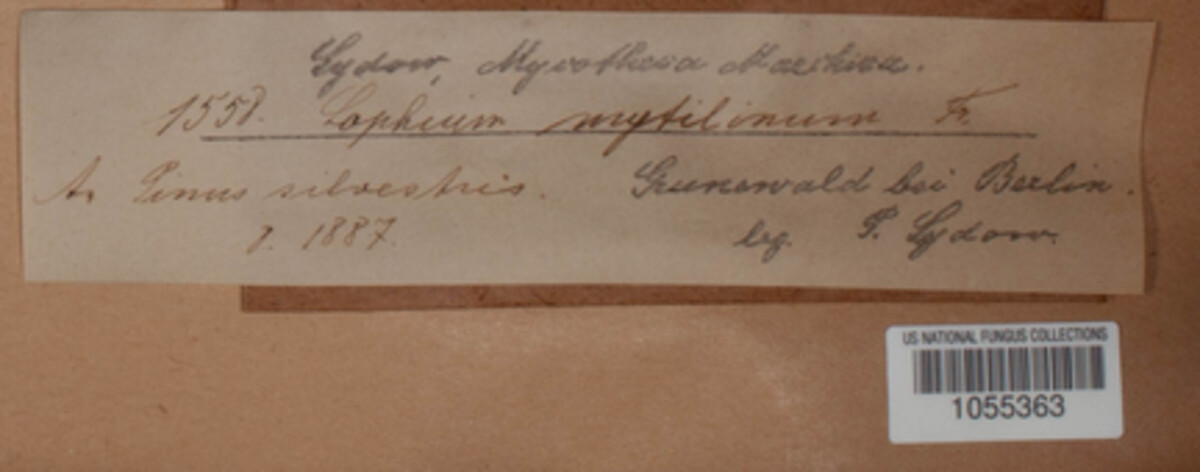 Sydow, Mycotheca Marchica.
1558. Lophium mytilinum Fr.
A. Pinus silvestris. Grunewald bei Berlin.
8. 1887. leg. P. Sydow.
US NATIONAL FUNGUS COLLECTIONS
1055363